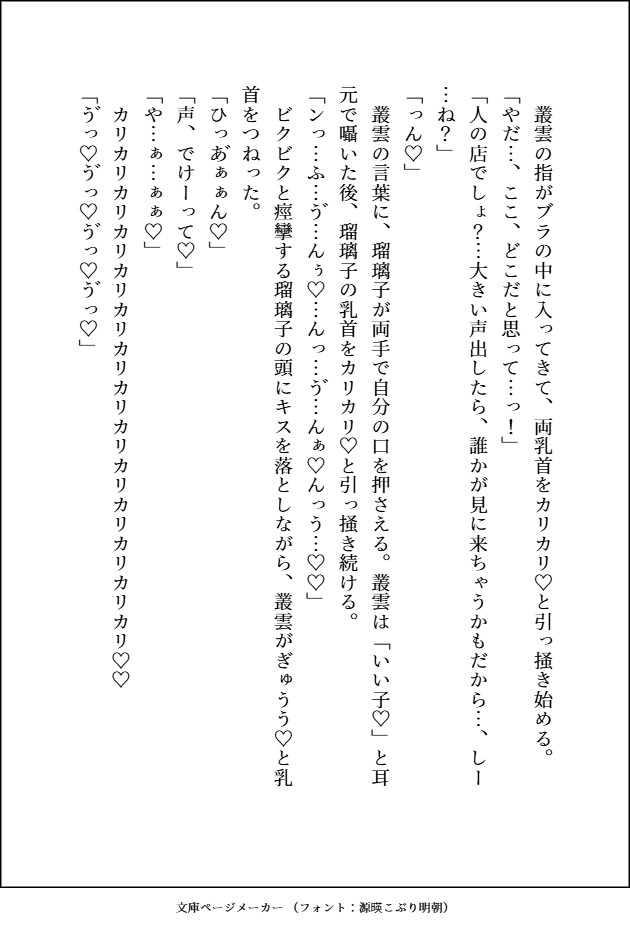 叢雲の指がブラの中に入ってきて、両乳首をカリカリ♡と引っ掻き始める。
「やだ…、ここ、どこだと思って…っ！」
「人の店でしょ？…大きい声出したら、誰かが見に来ちゃうかもだから…、しー
…ね？」
「っん♡」
　叢雲の言葉に、瑠璃子が両手で自分の口を押さえる。叢雲は「いい子♡」と耳
元で囁いた後、瑠璃子の乳首をカリカリ♡と引っ掻き続ける。
「ンっ…ふ…ゔ…んぅ♡…んっ…ゔ…んぁ♡んっう…♡♡」
　ビクビクと痙攣する瑠璃子の頭にキスを落としながら、叢雲がぎゅうう♡と乳
首をつねった。
「ひっあ゙ぁぁん♡」
「声、でけーって♡」
「や…ぁ…ぁぁ♡」
　カリカリカリカリカリカリカリカリカリカリカリカリカリカリ♡♡
「ゔっ♡ゔっ♡ゔっ♡ゔっ♡」
文庫ページメーカー（フォント：源暎こぶり明朝）